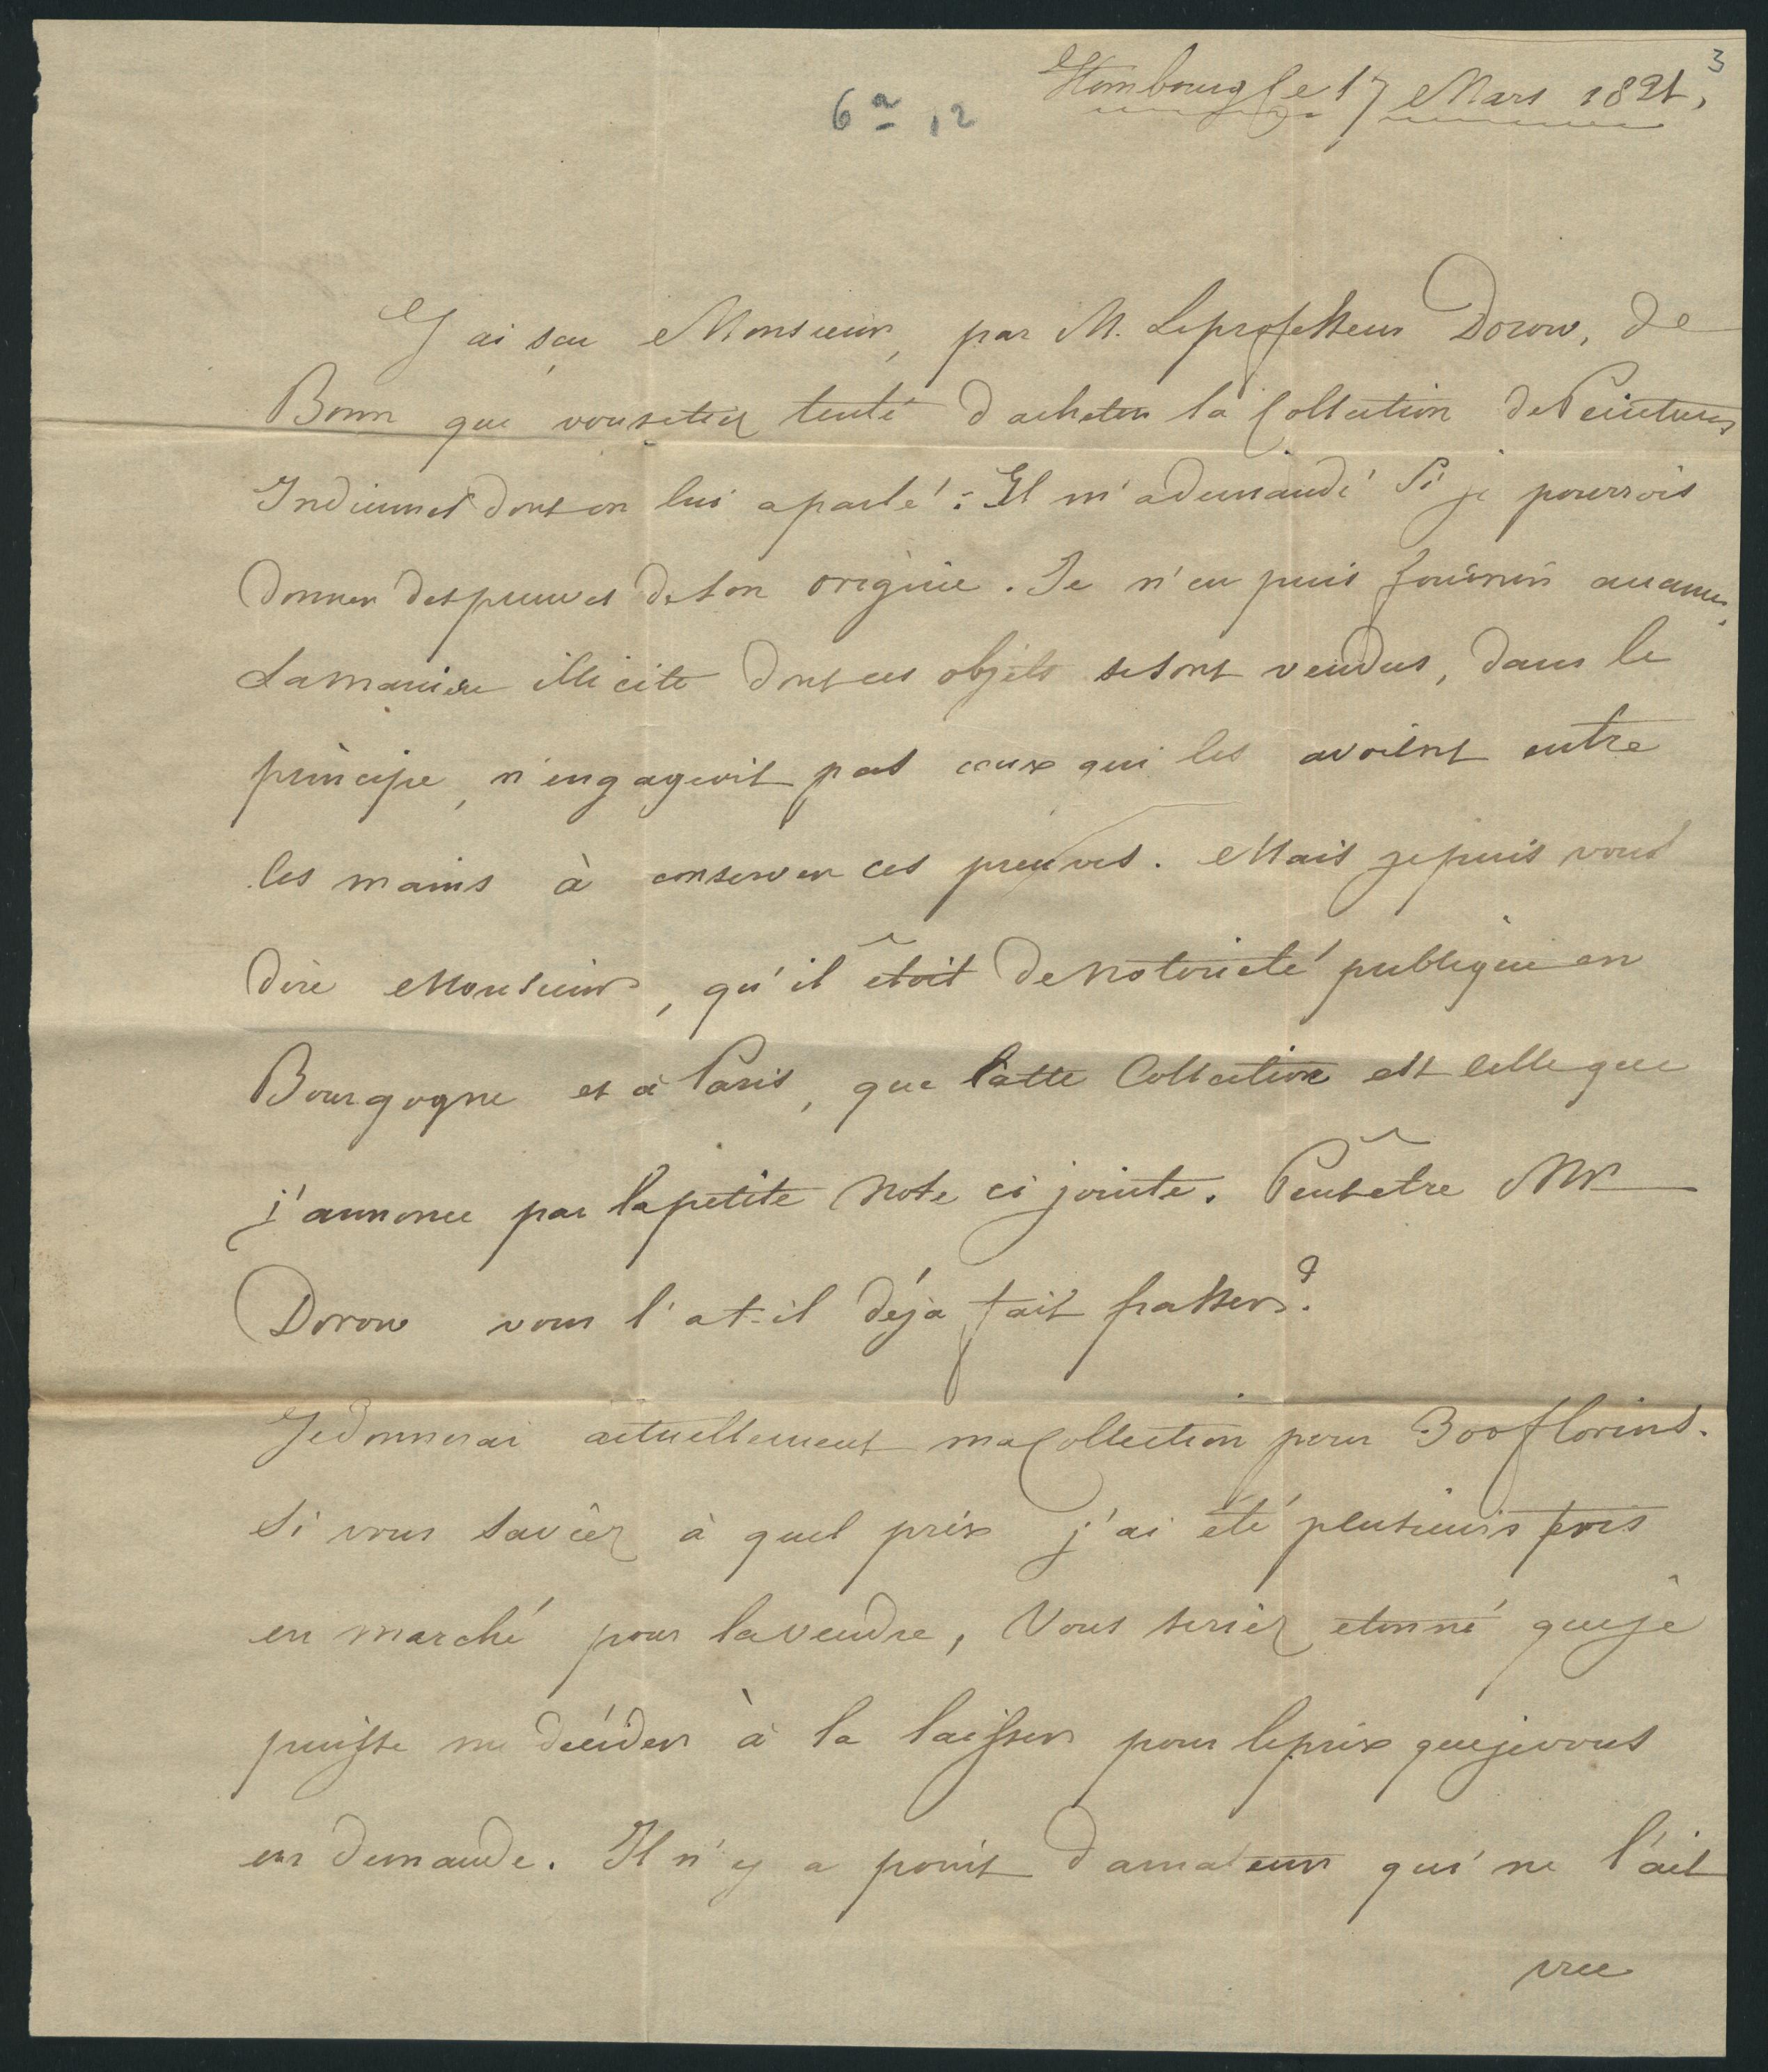 3
Hombourg le 17 Mars 1821.
6a 12
J'ai sçu Monsieur, par M. Le professeur Dorow, de
Bonn que vous etiez tenté d'acheter la Collection de Peintures
Indiennes dont on lui a parlé : Il m'a demandé Si je pourrois
donner des preuves de son origine. Je n'en puis fournir aucunes.
La maniere illicite dont ces objets se sont vendus, dans le
principe, n'engageoit pas ceux qui les avoient entre
les mains à conserver ces preuves. Mais je puis vous
dire Monsieur, qu'il étoit de Notorieté publique en
Bourgogne et à Paris, que Cette Collection est celle que
j'annonce par la petite Note ci jointe. Peutêtre Mr
Dorow vous l'at-il déja fait passer?
Je donnerai actuellement ma Collection pour 300 florins.
Si vous saviez à quel prix j'ai été plusieurs fois
en marché pour la vendre, Vous seriez etonné que je
puisse me décider à la laisser pour le prix que je vous
en demande. Il n'y a point d'amateur qui ne l'ait
vue